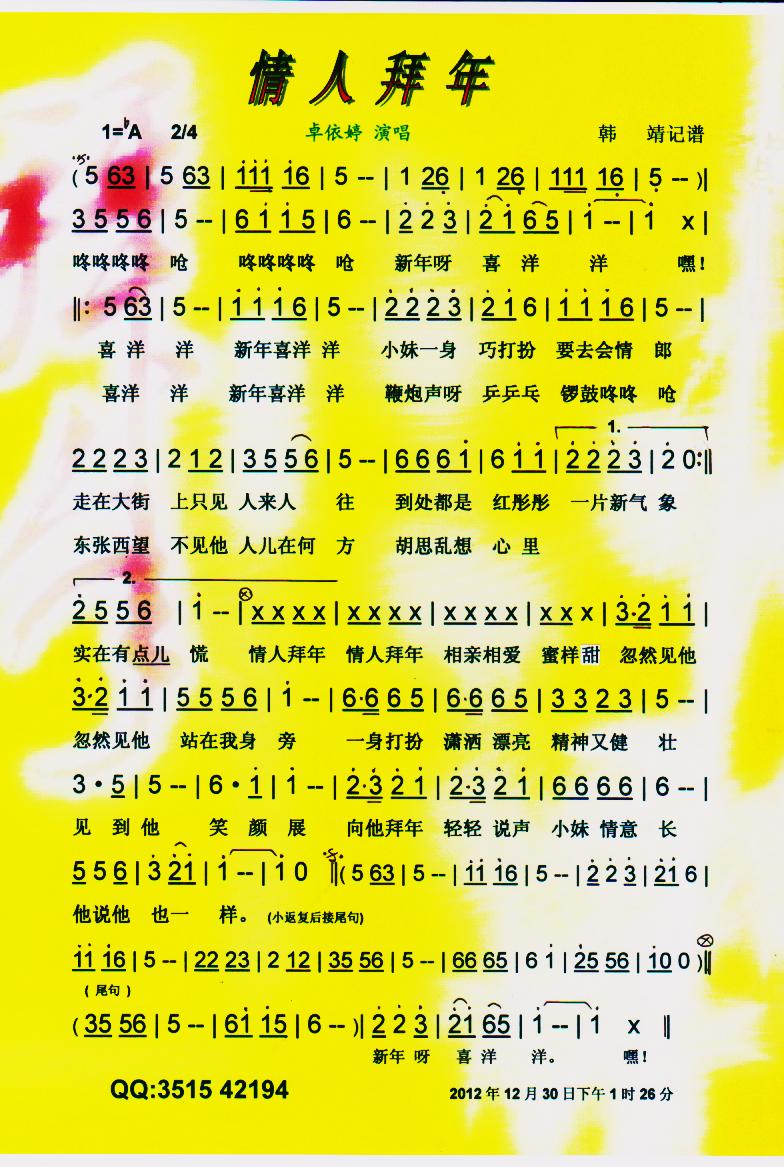 情人拜年
1=♭A 2/4 卓依婷 演唱 韩 靖记谱
( 5 63 | 5 63 | 111 16 | 5 -- | 1 26 | 1 26 | 111 16 | 5 -- )‖
3 5 5 6 | 5 -- | 6 1 1 5 | 6 -- | 2 2 3 | 2 1 6 5 | 1 -- | 1 x |
咚咚咚咚 呛 咚咚咚咚 呛 新年呀 喜 洋 洋 嘿!
‖: 5 63 | 5 -- | 1 1 1 6 | 5 -- | 2 2 2 3 | 2 1 6 | 1 1 1 6 | 5 -- |
喜 洋 洋 新年喜洋 洋 小妹一身 巧打扮 要去会情 郎
喜洋 洋 新年喜洋 洋 鞭炮声呀 乒乒乓 锣鼓咚咚 呛
1.
2 2 2 3 | 2 1 2 | 3 5 5 6 | 5 -- | 6 6 6 1 | 6 1 1 | 2 2 2 3 | 2 0 :‖
走在大街 上只见 人来人 往 到处都是 红彤彤 一片新气 象
东张西望 不见他 人儿在何 方 胡思乱想 心 里
2.
2 5 5 6 | 1 -- | x x x x | x x x x | x x x x | x x x | 3·2 1 1 |
实在有点儿 慌 情人拜年 情人拜年 相亲相爱 蜜样甜 忽然见他
3·2 1 1 | 5 5 5 6 | 1 -- | 6·6 6 5 | 6·6 6 5 | 3 3 2 3 | 5 -- |
忽然见他 站在我身 旁 一身打扮 潇洒 漂亮 精神又健 壮
3 · 5 | 5 -- | 6 · 1 | 1 -- | 2·3 2 1 | 2·3 2 1 | 6 6 6 6 | 6 -- |
见 到 他 笑 颜 展 向他拜年 轻轻 说声 小妹 情意 长
5 5 6 | 3 21 | 1 -- | 1 0 ‖( 5 63 | 5 -- | 11 16 | 5 -- | 2 2 3 | 21 6 |
他说他 也一 样。 (小返复后接尾句)
11 16 | 5 -- | 22 23 | 2 12 | 35 56 | 5 -- | 66 65 | 6 1 | 25 56 | 10 0 )‖
( 尾句 )
( 35 56 | 5 -- | 61 15 | 6 -- )| 2 2 3 | 21 65 | 1 -- | 1 x ‖
新年 呀 喜 洋 洋。 嘿!
QQ:3515 42194 2012 年 12 月 30 日下午 1 时 26 分